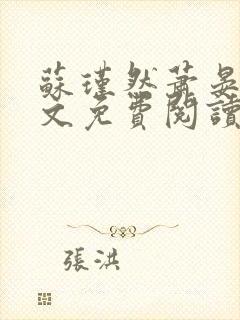 蘇瑾然蕭晏
文免費閱讀
張洪